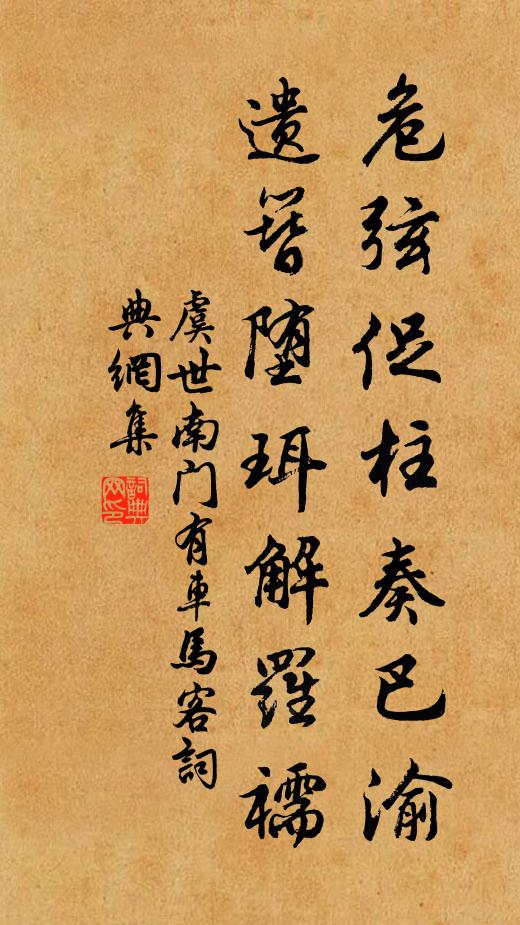 危弦促柱奏巴渝
遗簪堕珥解羅襦
虞世南门有車馬客詞
典網集
詞典網印